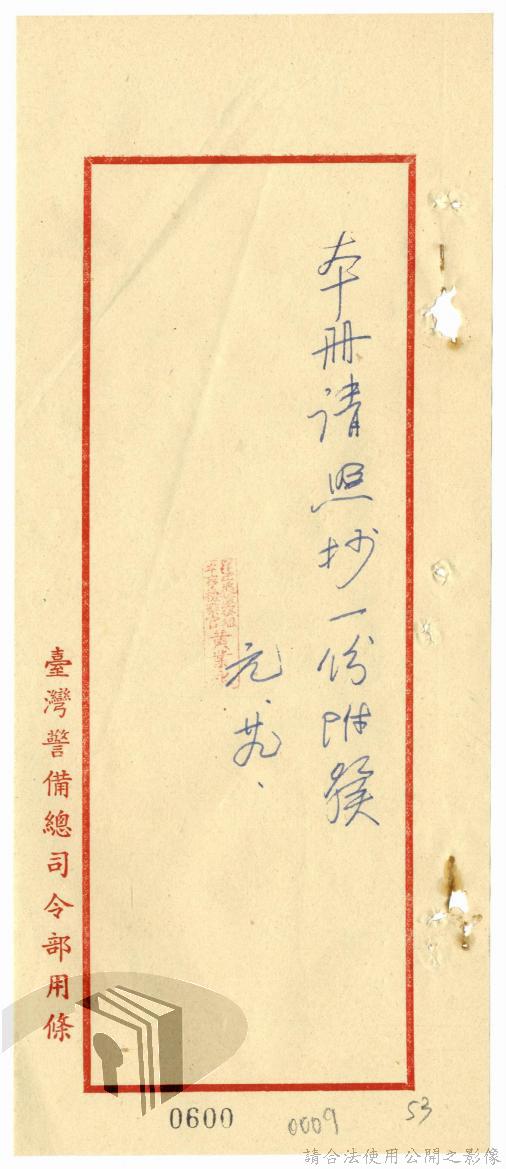 本册请照抄一份附發
元、廿九、
臺灣警備總司令部用條
0600
0009
53
請合法使用公開之影像